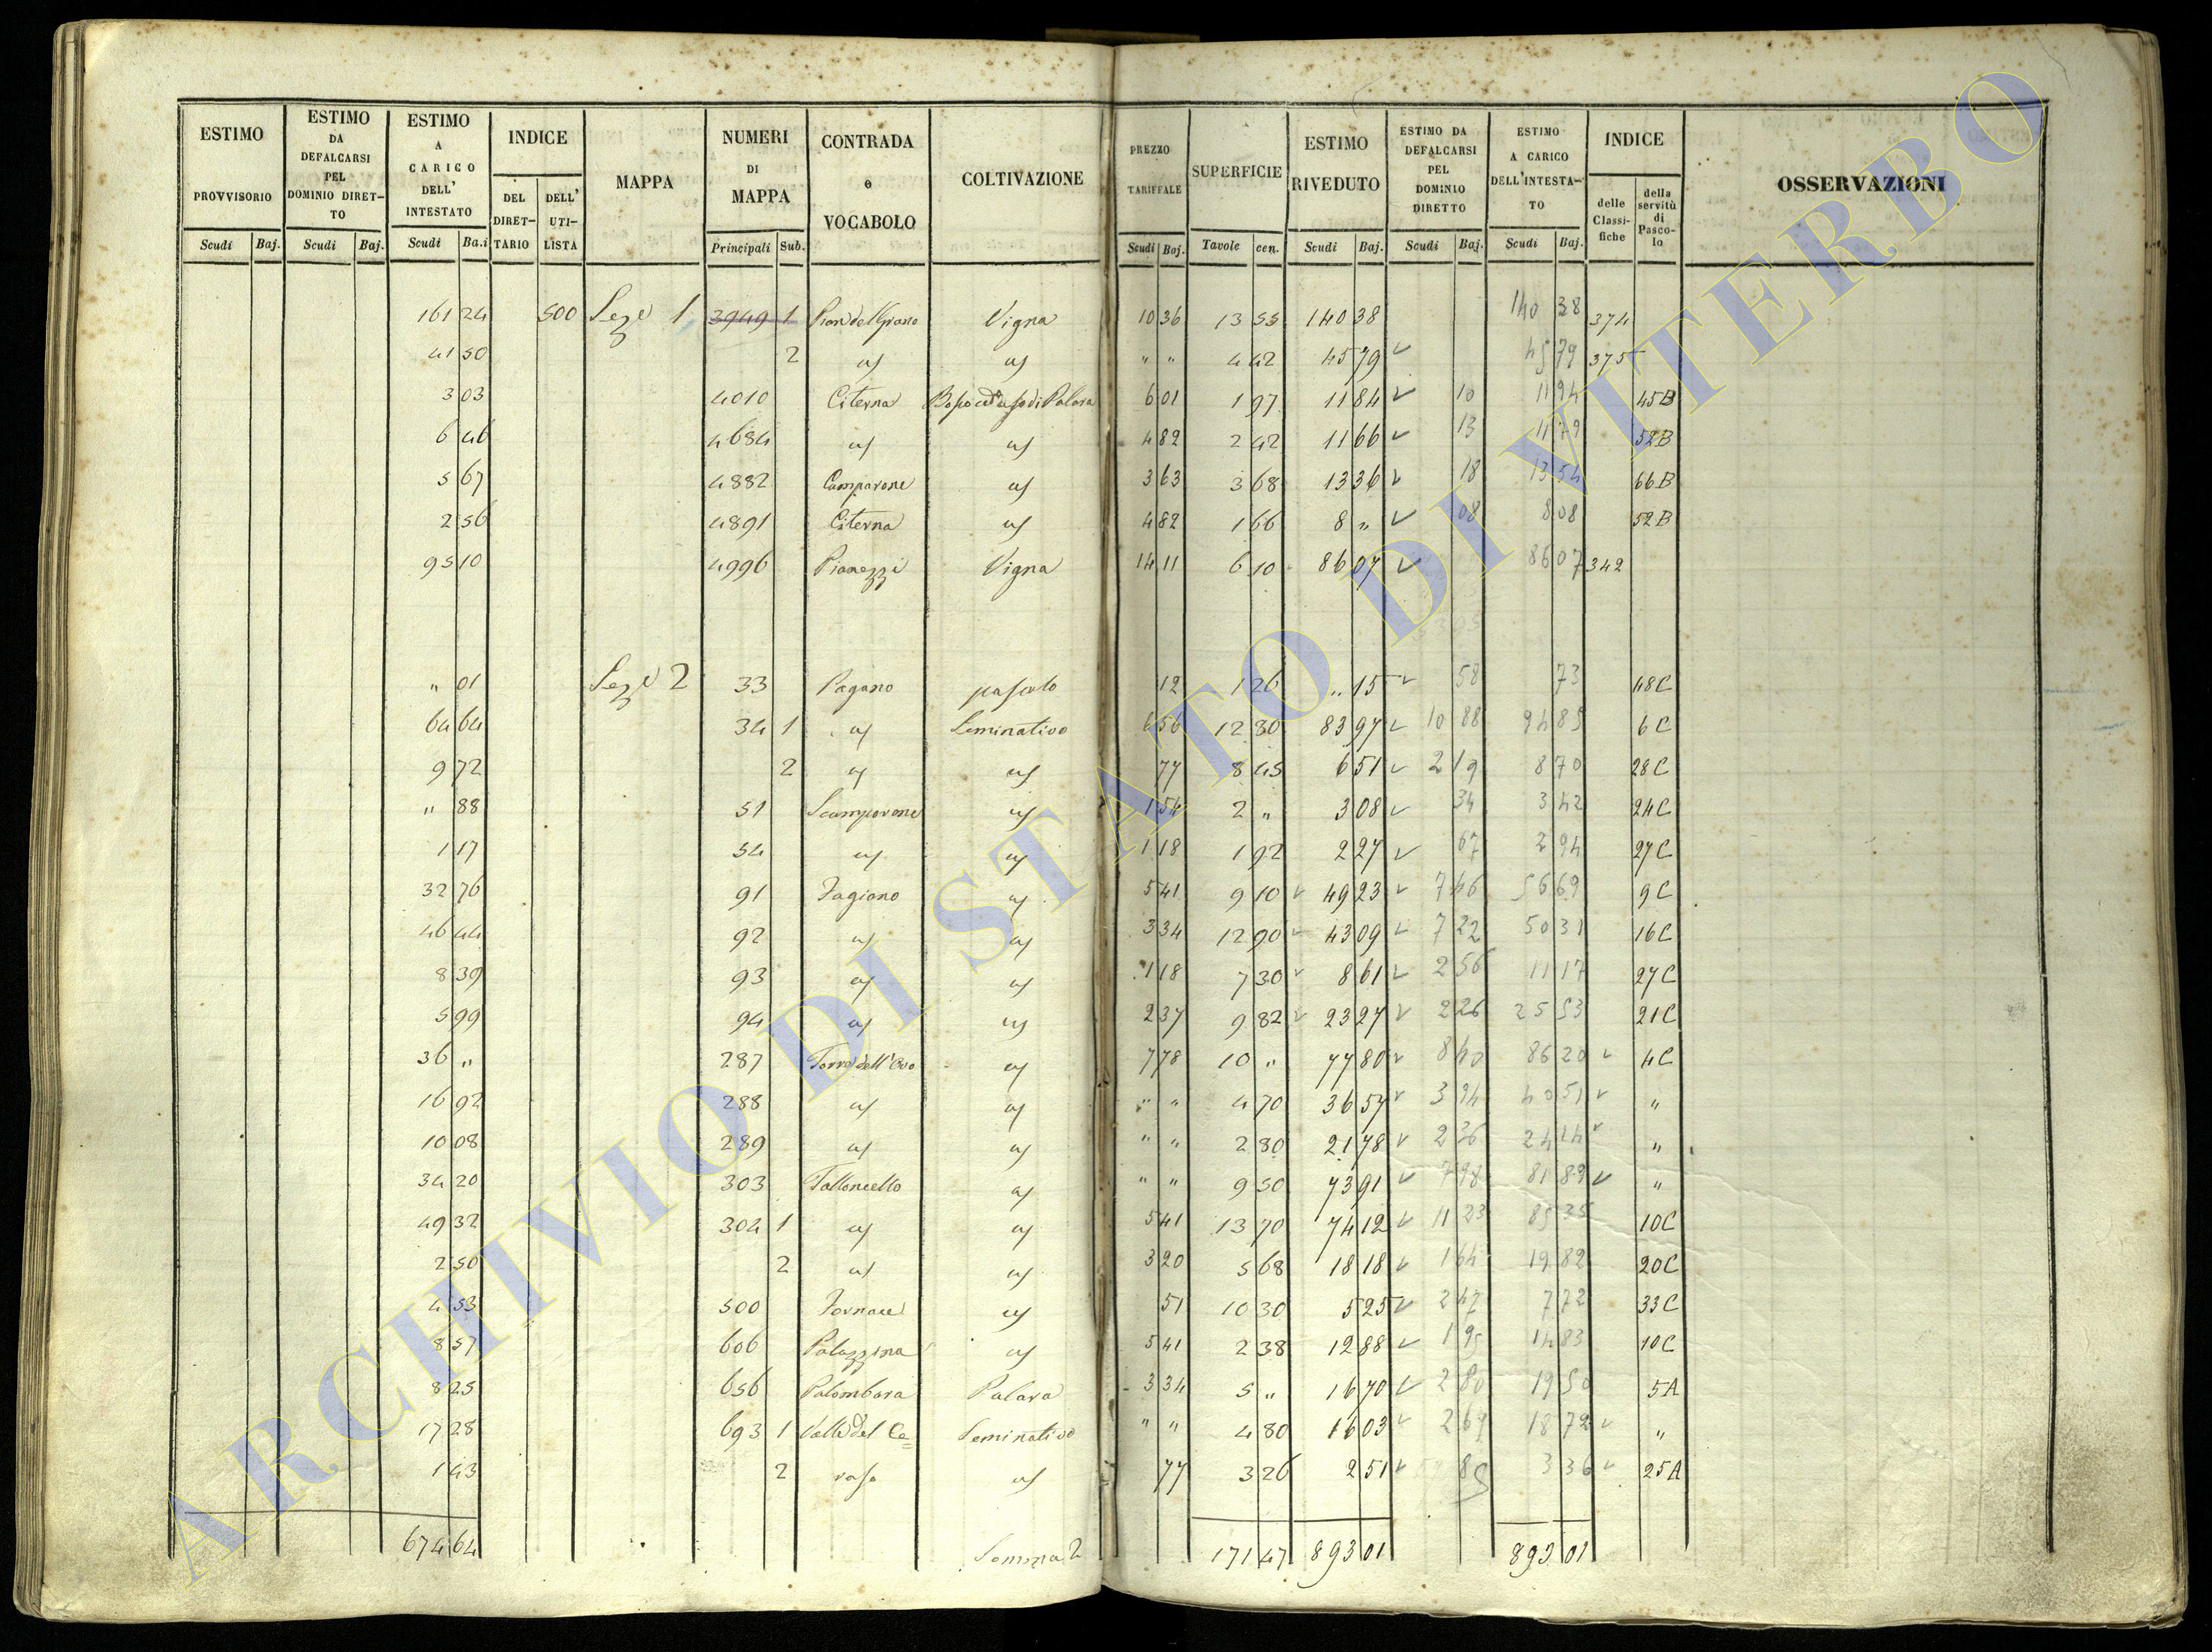 ESTIMO PROVVISORIO | ESTIMO DA DEFALCARSI PEL DOMINIO DIRET-TO | ESTIMO A CARICO DELL' INTESTATO | INDICE | MAPPA | NUMERI DI MAPPA | CONTRADA o VOCABOLO | COLTIVAZIONE | PREZZO TARIFFALE | SUPERFICIE | ESTIMO RIVEDUTO | ESTIMO DA DEFALCARSI PEL DOMINIO DIRETTO | ESTIMO A CARICO DELL'INTESTA-TO | INDICE | OSSERVAZIONI
DEL DIRET-TARIO | DELL' UTI-LISTA | delle Classi-fiche | della servitù di Pasco-lo
Scudi | Baj. | Scudi | Baj. | Scudi | Ba.i | Principali | Sub. | Scudi | Baj. | Tavole | cen. | Scudi | Baj. | Scudi | Baj. | Scudi | Baj.
161 24 | 500 | Seze 1 | 3949 1 | Pian del Grano | Vigna | 10 36 | 13 55 | 140 38 | 140 38 | 374
41 50 | 2 | " | " | 4 42 | 45 79 | 45 79 | 375
3 03 | 4010 | Citerna | 6 01 | 1 97 | 11 84 | 10 | 11 94 | 45B
6 46 | 4684 | 4 82 | 2 42 | 11 66 | 13 | 11 79 | 52B
5 67 | 4882 | Camparone | 3 63 | 3 68 | 13 36 | 18 | 13 54 | 66B
2 56 | 4891 | Citerna | 4 82 | 1 66 | 8 " | 08 | 8 08 | 52B
95 10 | 4996 | Pianezzi | Vigna | 14 11 | 6 10 | 86 07 | 86 07 | 342
" 01 | Seze 2 | 33 | Pagano | pascolo | 12 | 1 26 | " 15 | 58 | 73 | 48C
64 64 | 34 1 | Seminativo | 6 56 | 12 80 | 83 97 | 10 88 | 94 85 | 6C
9 72 | 2 | 77 | 8 45 | 6 51 | 2 19 | 8 70 | 28C
" 88 | 51 | Scamporone | 1 54 | 2 " | 3 08 | 34 | 3 42 | 24C
1 17 | 54 | 1 18 | 1 92 | 2 27 | 67 | 2 94 | 27C
32 76 | 91 | Fagiano | 5 41 | 9 10 | 49 23 | 7 46 | 56 69 | 9C
46 44 | 92 | 3 34 | 12 90 | 43 09 | 7 22 | 50 31 | 16C
8 39 | 93 | 1 18 | 7 30 | 8 61 | 2 56 | 11 17 | 27C
5 99 | 94 | 2 37 | 9 82 | 23 27 | 2 26 | 25 53 | 21C
36 " | 287 | Torre dell'Oro | 7 78 | 10 " | 77 80 | 8 40 | 86 20 | 4C
16 92 | 288 | " | " | 4 70 | 36 57 | 3 94 | 40 51 | "
10 08 | 289 | " | " | 2 80 | 21 78 | 2 36 | 24 14 | "
34 20 | 303 | Falloncello | " | " | 9 50 | 73 91 | 7 98 | 81 89 | "
49 32 | 304 1 | 5 41 | 13 70 | 74 12 | 11 23 | 85 35 | 10C
2 50 | 2 | 3 20 | 5 68 | 18 18 | 1 64 | 19 82 | 20C
4 53 | 500 | Fornace | 51 | 10 30 | 5 25 | 2 47 | 7 72 | 33C
8 57 | 606 | Palazzina | 5 41 | 2 38 | 12 88 | 1 95 | 14 83 | 10C
8 25 | 656 | Palombara | Palara | 3 34 | 5 " | 16 70 | 2 80 | 19 50 | 5A
17 28 | 693 1 | Valle del Ce= | Seminativo | " | " | 4 80 | 16 03 | 2 69 | 18 72 | "
1 43 | 2 | rasa | 77 | 3 26 | 2 51 | 85 | 3 36 | 25A
674 64 | Somma 2 | 171 47 | 893 01 | 893 01
ARCHIVIO DI STATO DI VITERBO